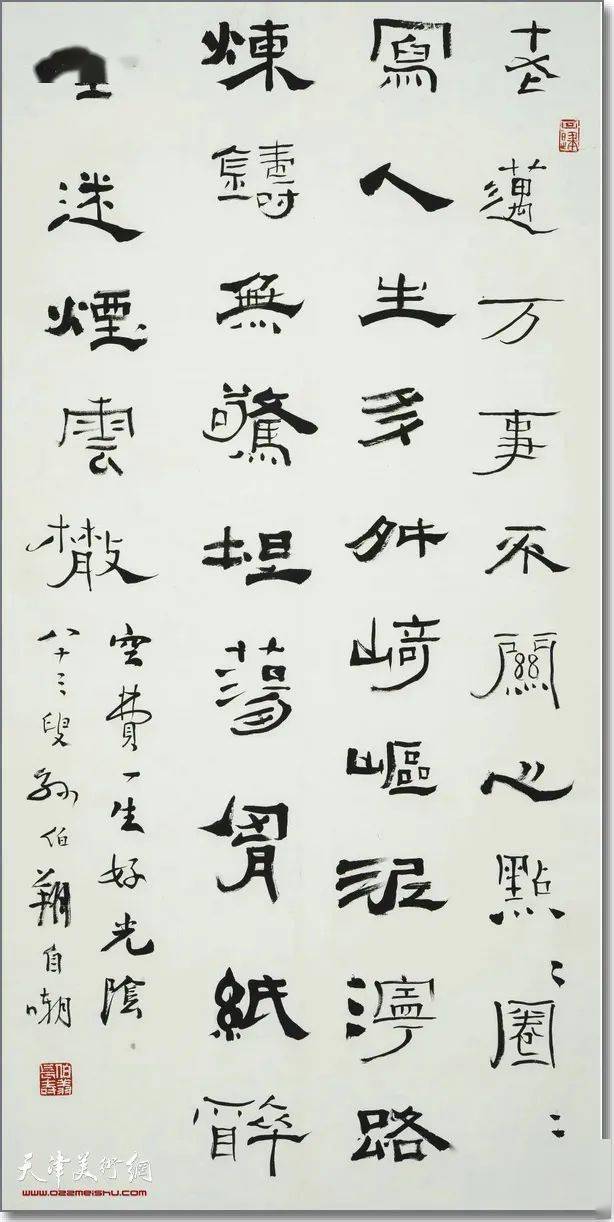 老邁万事不關心點々圈々
寫人生多舛崎嶇泥濘路
煉鑄無驚坦蕩胷紙醉
迷煙雲散
空費一生好光陰
八十三叟孫伯翔自嘲
天津美術網
www.022meishu.com